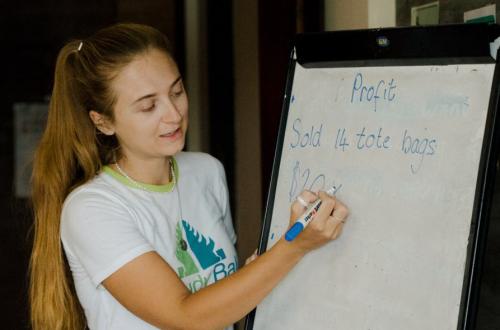 Profit
Sold 14 tote bags
$20 x